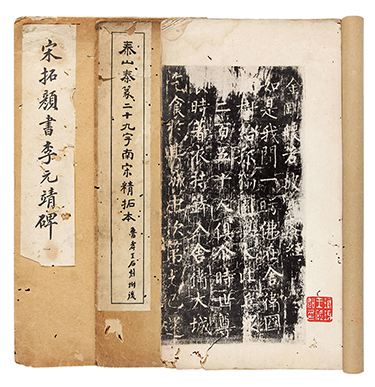 金剛般若波羅蜜經
如是我聞一時佛在舍衛國
給孤獨園與大比丘眾
二百五十人俱尒時世尊
時著衣持鉢入舍衛大城
乞食於其城中次第乞已還
泰山秦篆二十九字南宋精拓本
魯孝王石刻附後
宋拓顏書李元靖碑
一